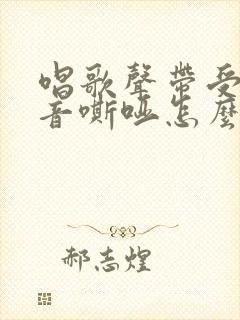 唱歌聲帶受
音嘶啞怎麼
郝志煌